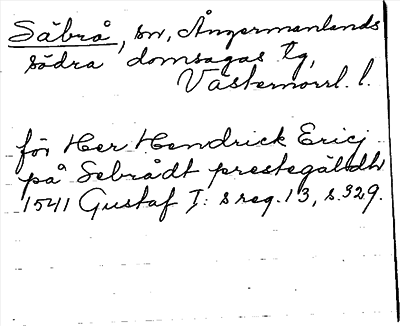 Säbrå, sn, Ångermanlands
södra domsagas tg,
Västernorrl. l.
för Her Hendrick Ericj
på Sebrådt prestegäldh
1541 Gustaf I: s reg. 13, s. 329.